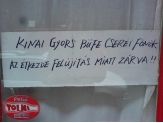 KINAI GYORS BÜFE CSEREI FONOK
AZ ETKEZDE FELÚJÍTÁS MIATT ZÁRVA!!
TOLNA